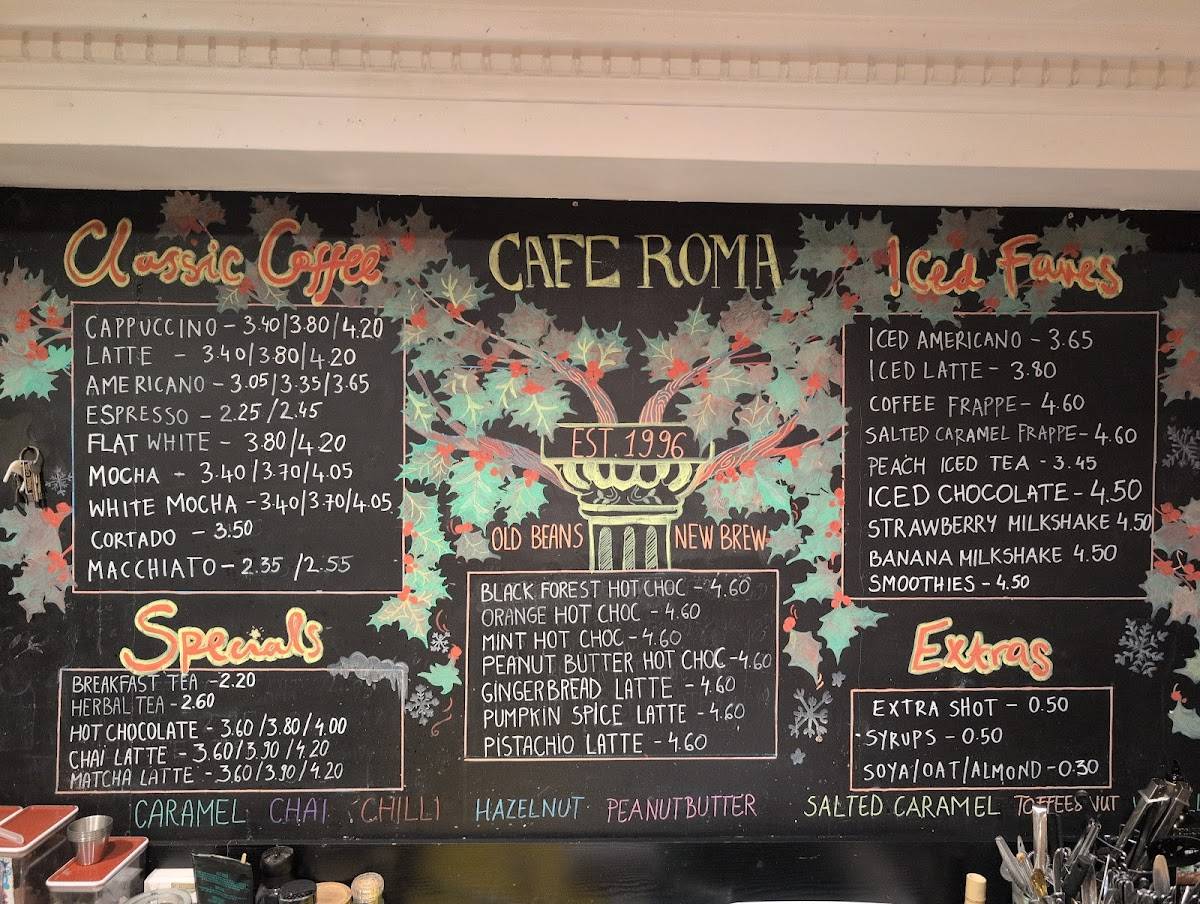 Classic Coffee
CAPPUCCINO - 3.40/3.80/4.20
LATTE - 3.40/3.80/4.20
AMERICANO - 3.05/3.35/3.65
ESPRESSO - 2.25/2.45
FLAT WHITE - 3.80/4.20
MOCHA - 3.40/3.70/4.05
WHITE MOCHA - 3.40/3.70/4.05
CORTADO - 3.50
MACCHIATO - 2.35 /2.55
Specials
BREAKFAST TEA - 2.20
HERBAL TEA - 2.60
HOT CHOCOLATE - 3.60/3.80/4.00
CHAI LATTE - 3.60/3.90/4.20
MATCHA LATTE - 3.60/3.90/4.20
CAFE ROMA
EST. 1996
OLD BEANS NEW BREW
BLACK FOREST HOT CHOC - 4.60
ORANGE HOT CHOC - 4.60
MINT HOT CHOC - 4.60
PEANUT BUTTER HOT CHOC - 4.60
GINGERBREAD LATTE - 4.60
PUMPKIN SPICE LATTE - 4.60
PISTACHIO LATTE - 4.60
Iced Faves
ICED AMERICANO - 3.65
ICED LATTE - 3.80
COFFEE FRAPPE - 4.60
SALTED CARAMEL FRAPPE - 4.60
PEACH ICED TEA - 3.45
ICED CHOCOLATE - 4.50
STRAWBERRY MILKSHAKE 4.50
BANANA MILKSHAKE 4.50
SMOOTHIES - 4.50
Extras
EXTRA SHOT - 0.50
SYRUPS - 0.50
SOYA/OAT/ALMOND - 0.30
CARAMEL CHAI CHILLI HAZELNUT PEANUTBUTTER SALTED CARAMEL TOFFEE NUT